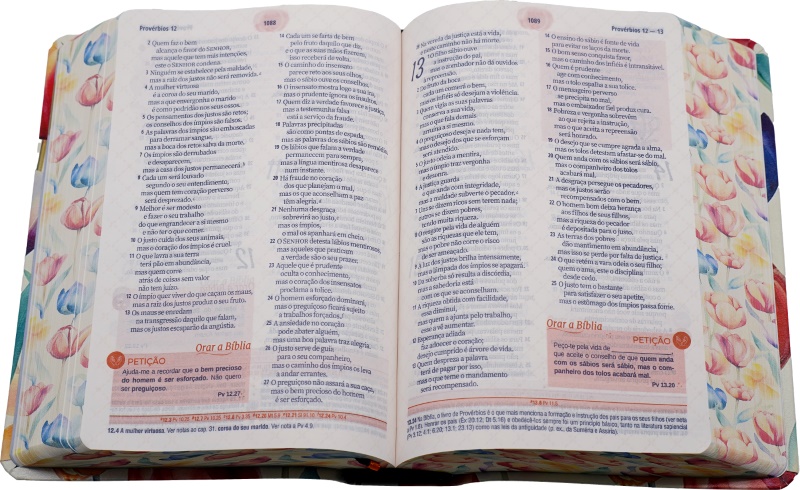 Provérbios 12
1088
2 Quem faz o bem
alcança o favor do SENHOR,
mas aquele que tem más intenções,
este o SENHOR condena.
3 Ninguém se estabelece pela maldade,
mas a raiz dos justos não será removida.
4 A mulher virtuosa
é a coroa do seu marido,
mas a que envergonha o marido
é como podridão nos seus ossos.
5 Os pensamentos dos justos são retos;
os conselhos dos ímpios são falsos.
6 As palavras dos ímpios são emboscadas
para derramar sangue,
mas a boca dos retos salva da morte.
7 Os ímpios são derrubados
e desaparecem,
mas a casa dos justos permanecerá.
8 Cada um será louvado
segundo o seu entendimento,
mas quem tem coração perverso
será desprezado.
9 Melhor é ser modesto
e fazer o seu trabalho
do que engrandecer a si mesmo
e não ter o que comer.
10 O justo cuida dos seus animais,
mas o coração dos ímpios é cruel.
11 O que lavra a sua terra
terá pão em abundância,
mas quem corre
atrás de coisas sem valor
não tem juízo.
12 O ímpio quer viver do que caçam os maus,
mas a raiz dos justos produz o seu fruto.
13 Os maus se enredam
na transgressão daquilo que falam,
mas os justos escaparão da angústia.
Orar a Bíblia
PETIÇÃO
Ajuda-me a recordar que o bem precioso
do homem é ser esforçado. Não quero
ser preguiçoso.
Pv 12.27
14 Cada um se farta de bem
pelo fruto daquilo que diz,
e o que as suas mãos fizerem,
isso receberá de volta.
15 O caminho do insensato
parece reto aos seus olhos,
mas o sábio ouve os conselhos.
16 O insensato mostra logo a sua ira,
mas o prudente ignora os insultos.
17 Quem diz a verdade favorece a justiça,
mas a testemunha falsa
está a serviço da fraude.
18 Palavras precipitadas
são como pontas de espada,
mas as palavras dos sábios são remédio.
19 Os lábios que falam a verdade
permanecem para sempre,
mas a língua mentirosa desaparece
num instante.
20 Há fraude no coração
dos que planejam o mal,
mas os que aconselham a paz
têm alegria.
21 Nenhuma desgraça
sobrevirá ao justo,
mas os ímpios,
o mal os apanhará em cheio.
22 O SENHOR detesta lábios mentirosos,
mas aqueles que praticam
a verdade são o seu prazer.
23 Aquele que é prudente
oculta o conhecimento,
mas o coração dos insensatos
proclama a tolice.
24 O homem esforçado dominará,
mas o preguiçoso ficará sujeito
a trabalhos forçados.
25 A ansiedade no coração
pode abater alguém,
mas uma boa palavra traz alegria.
26 O justo serve de guia
para o seu companheiro,
mas o caminho dos ímpios os leva
a andar errantes.
27 O preguiçoso não assará a sua caça,
mas o bem precioso do homem
é ser esforçado.
12.4 A mulher virtuosa. Ver notas ao cap. 31. coroa do seu marido. Ver nota a Pv 4.9.
1089
Provérbios 12 — 13
28 Na vereda da justiça está a vida,
e neste caminho não há morte.
13 O filho sábio ouve
a instrução do pai,
mas o zombador não dá ouvidos
à repreensão.
2 Do fruto da boca
cada um comerá o bem,
mas os infiéis só desejam a violência.
3 Quem vigia as suas palavras
conserva a sua vida,
mas o que fala demais
arruína a si mesmo.
4 O preguiçoso deseja e nada tem,
mas o desejo dos que se esforçam
será atendido.
5 O justo odeia a mentira,
mas o ímpio traz vergonha
e desonra.
6 A justiça guarda
a quem anda com integridade,
mas a maldade subverte o pecador.
7 Uns se dizem ricos sem terem nada;
outros se dizem pobres,
tendo muita riqueza.
8 O resgate pela vida de alguém
são as riquezas que ele tem,
mas o pobre não corre o risco
de ser ameaçado.
9 A luz dos justos brilha intensamente,
mas a lâmpada dos ímpios se apagará.
10 Da soberba só resulta a discórdia,
mas a sabedoria está
com os que se aconselham.
11 A riqueza obtida com facilidade,
essa diminuirá,
mas quem a ajunta pelo trabalho,
esse a vê aumentar.
12 Esperança adiada
faz adoecer o coração;
desejo cumprido é árvore de vida.
13 Quem despreza a palavra
terá de pagar por isso,
mas o que teme o mandamento
será recompensado.
14 O ensino do sábio é fonte de vida
para evitar os laços da morte.
15 O bom senso conquista favor,
mas o caminho dos infiéis é intransitável.
16 Quem é prudente
age com conhecimento,
mas o tolo espalha a sua tolice.
17 O mensageiro perverso
se precipita no mal,
mas o embaixador fiel produz cura.
18 Pobreza e vergonha sobrevêm
ao que rejeita a instrução,
mas o que aceita a repreensão
será honrado.
19 O desejo que se cumpre agrada a alma,
mas os tolos detestam afastar-se do mal.
20 Quem anda com os sábios será sábio,
mas o companheiro dos tolos
acabará mal.
21 A desgraça persegue os pecadores,
mas os justos serão
recompensados com o bem.
22 O homem bom deixa herança
aos filhos de seus filhos,
mas a riqueza do pecador
é depositada para o justo.
23 As terras dos pobres
dão mantimento em abundância,
mas isso se perde por falta de justiça.
24 O que retém a vara odeia o seu filho;
quem o ama, este o disciplina
desde cedo.
25 O justo tem o bastante
para satisfazer o seu apetite,
mas o estômago dos ímpios
passa fome.
Orar a Bíblia
PETIÇÃO
Peço-te pela vida de
que aceite o conselho de que quem anda
com os sábios será sábio, mas o com-
panheiro dos tolos acabará mal.
Pv 13.20